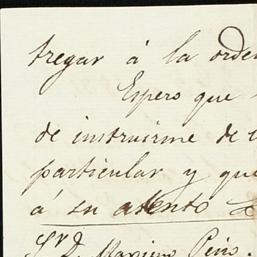 tregar á la orden
Espero que
de instruirme de
particular y que
á su atento
Sr. D. Maximo Peiro.